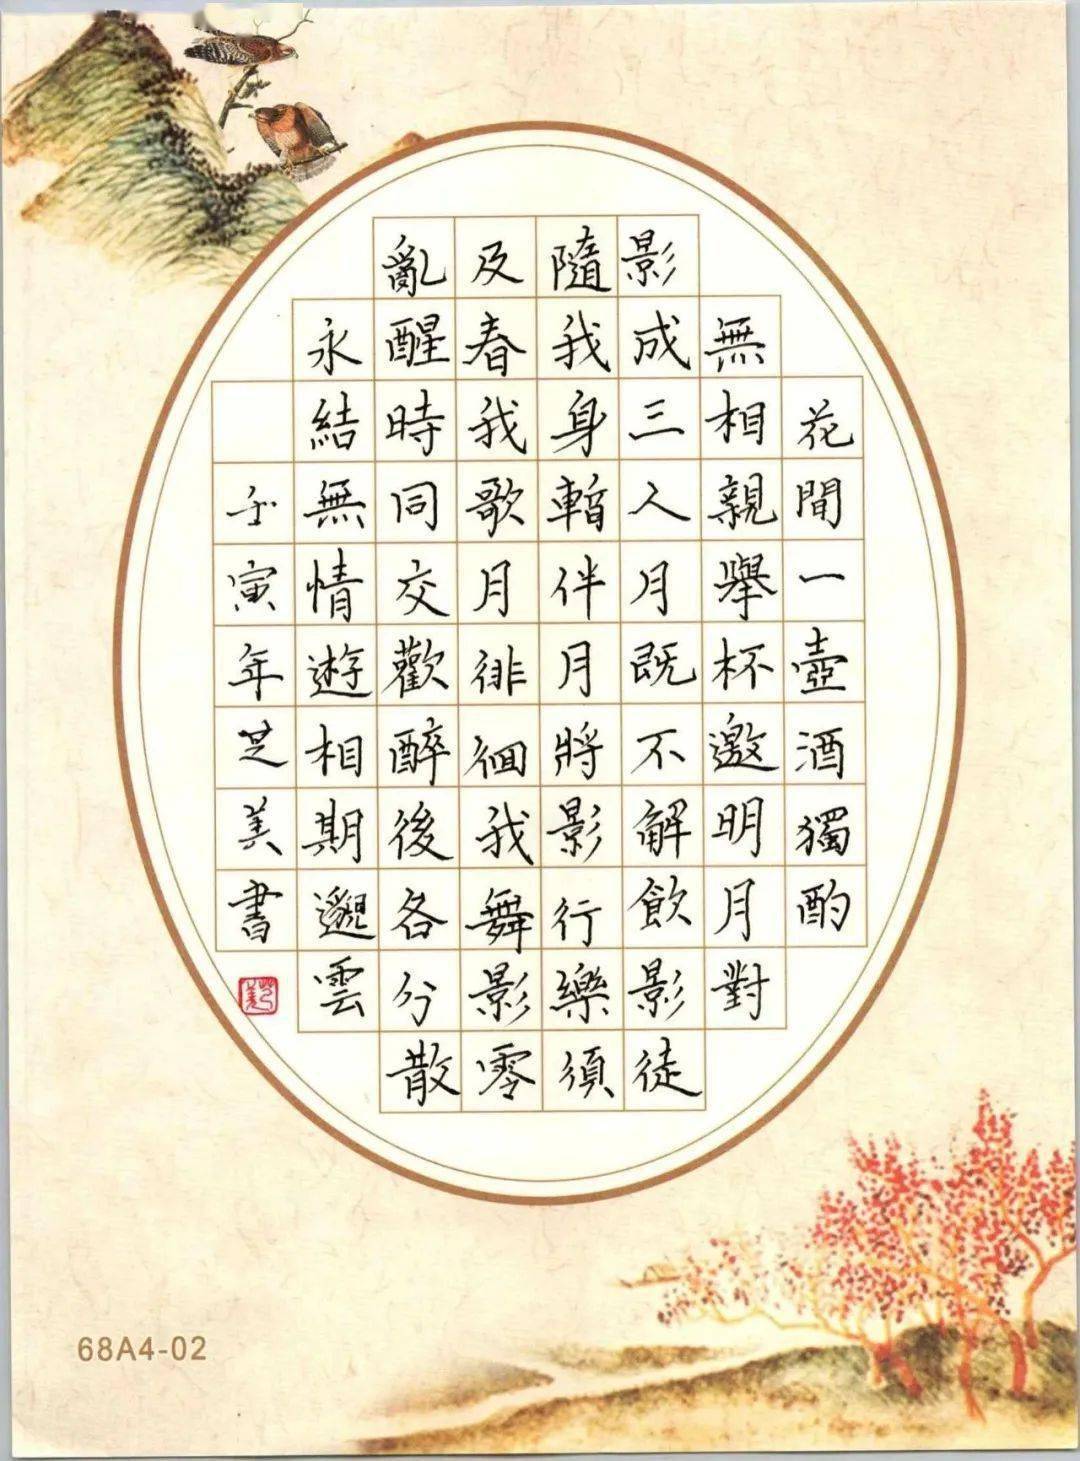 花間一壺酒獨酌
無相親舉杯邀明月對
影成三人月既不解飲影徒
隨我身暫伴月將影行樂須
及春我歌月徘徊我舞影零
亂醒時同交歡醉後各分散
永結無情遊相期邈雲
壬寅年芝美書
68A4-02